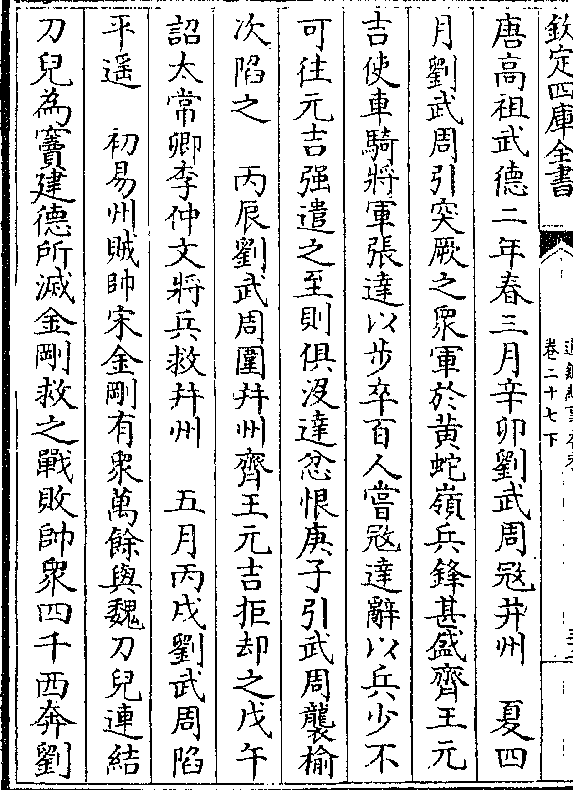 欽定四庫全書
卷二十七下
唐高祖武德二年春三月辛卯劉武周宼并州　夏四
月劉武周引突厥之衆軍於黄蛇嶺兵鋒甚盛齊王元
吉使車騎將軍張達以步卒百人嘗宼達辭以兵少不
可往元吉强遣之至則俱没達忿恨庚子引武周襲榆
次陷之　丙辰劉武周圍并州齊王元吉拒却之戊午
詔太常卿李仲文將兵救并州　五月丙戌劉武周陷
平遥　初易州賊帥宋金剛有衆萬餘與魏刀兒連結
刀兒為竇建德所滅金剛救之戰敗帥衆四千西奔劉